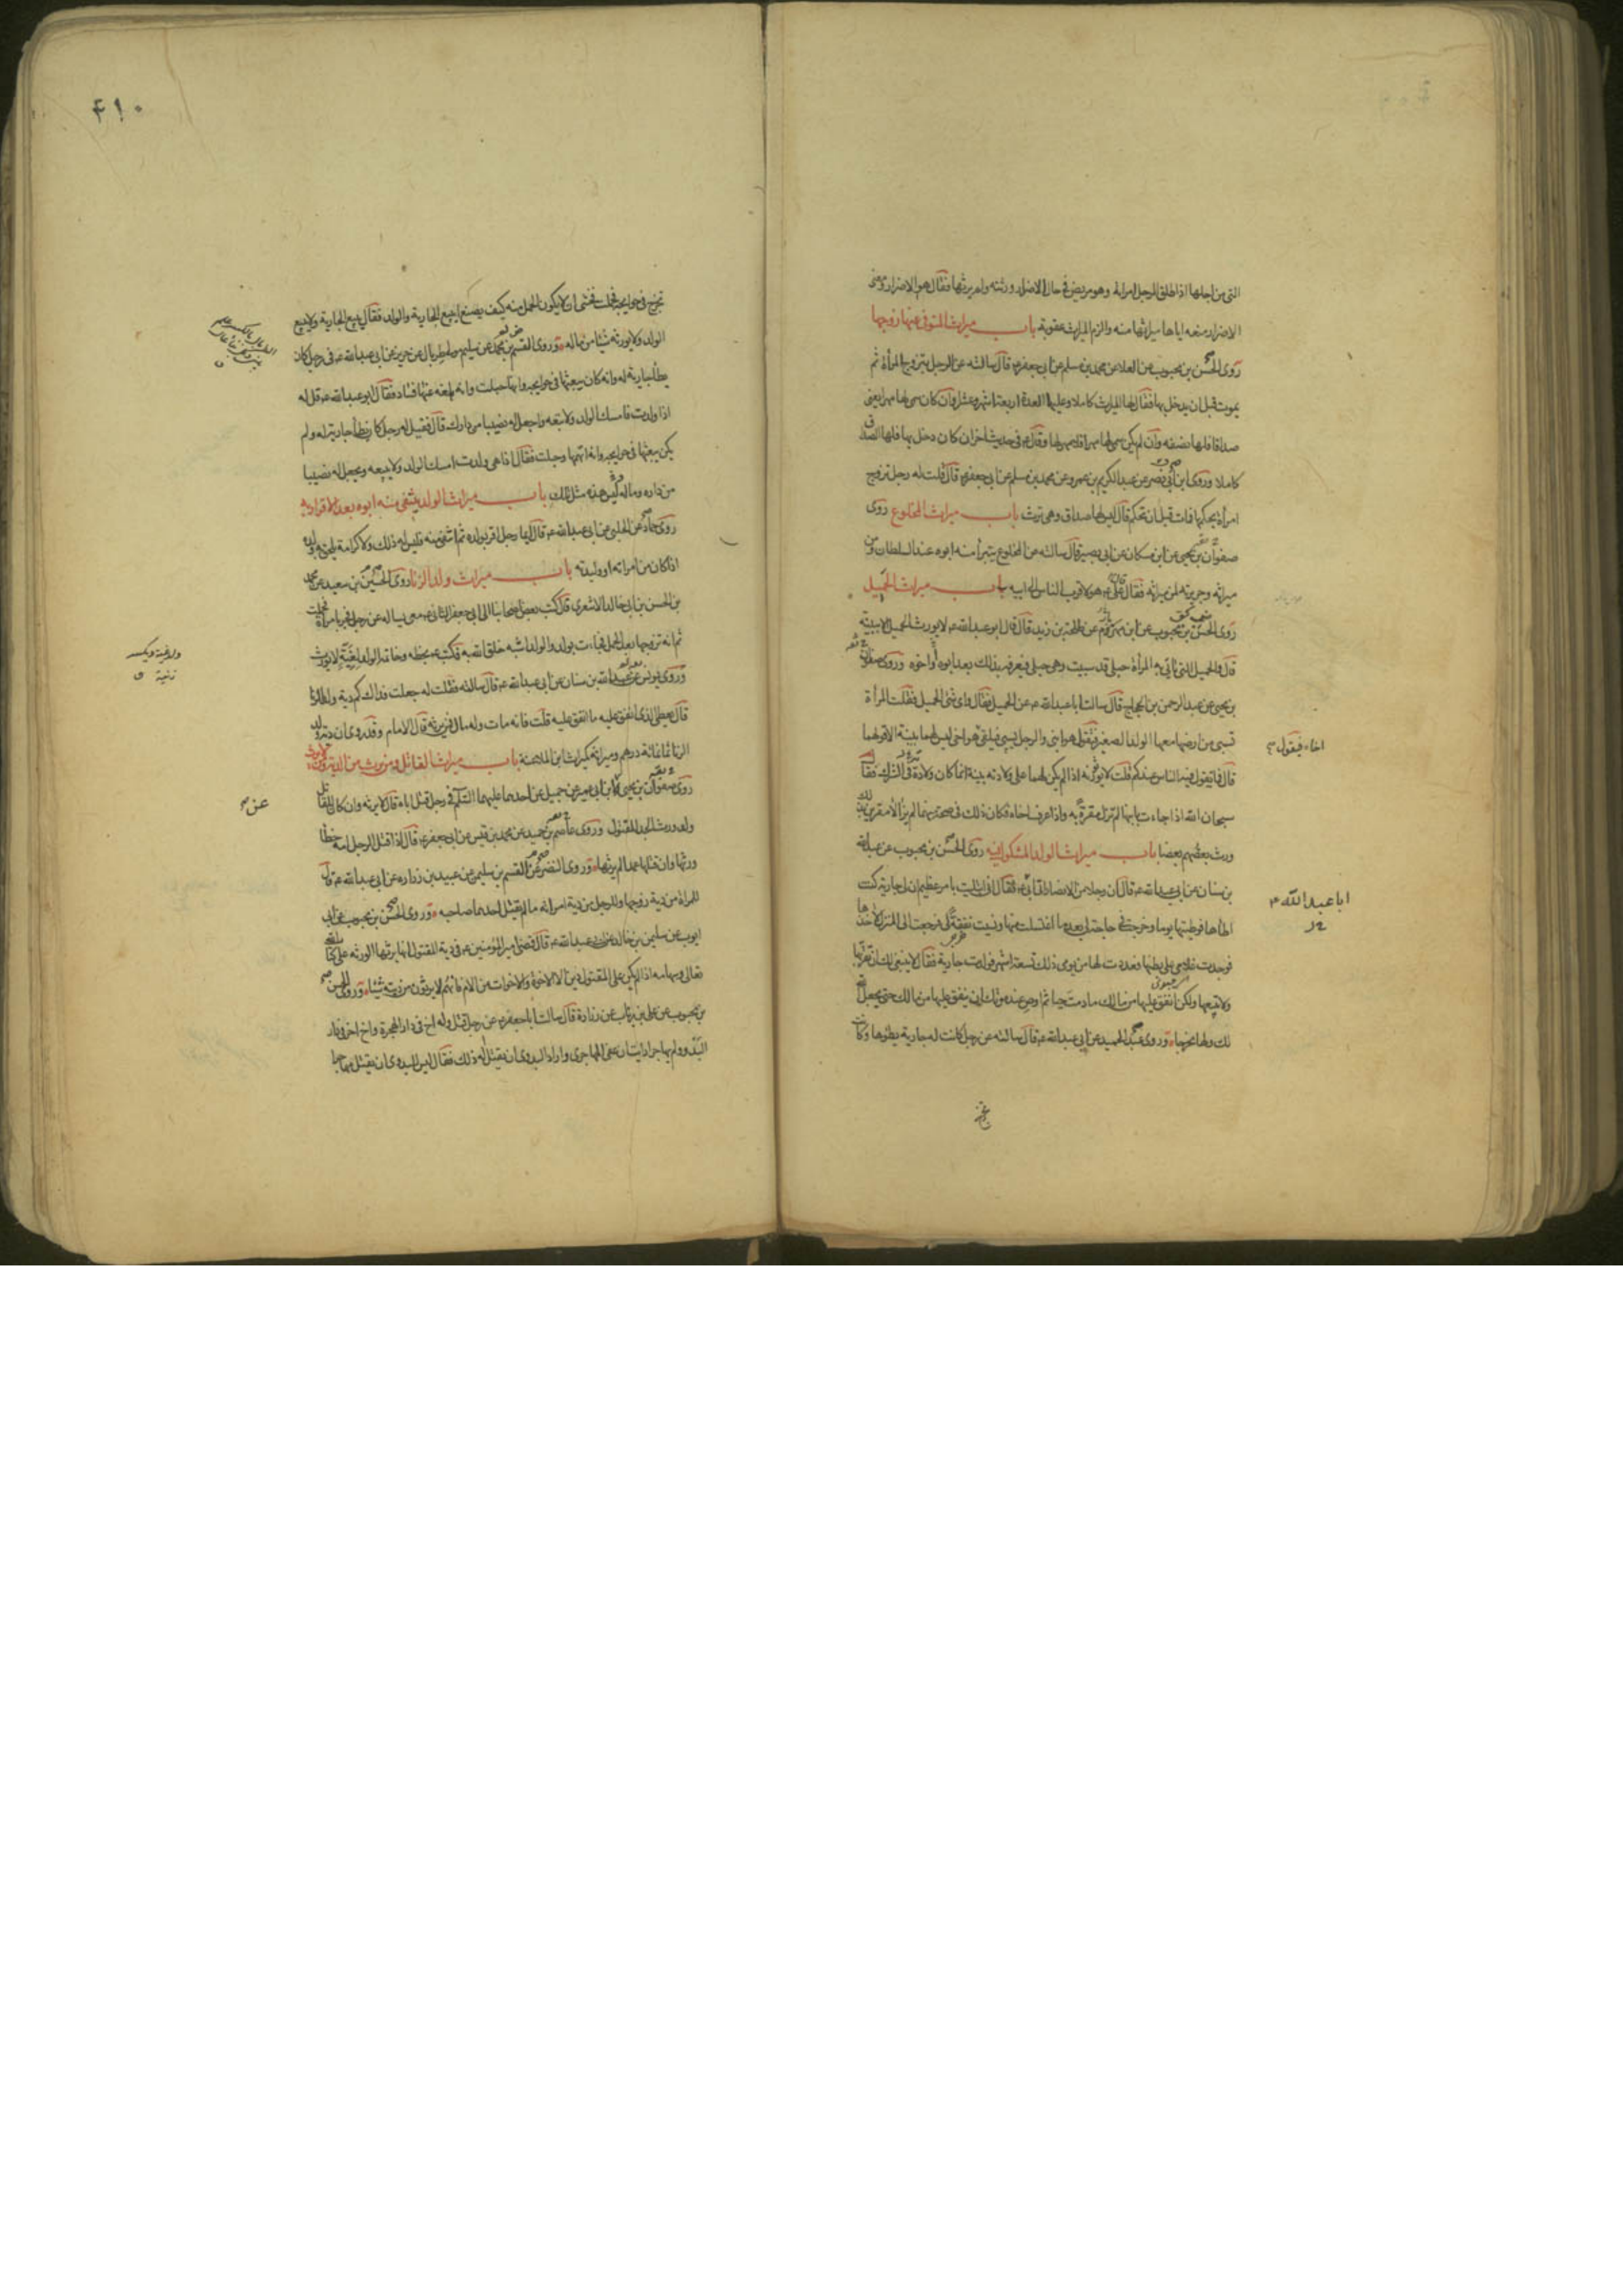 التى من اجلها اذا طلق الرجل امراته وهو مريض فى حال الاضرار ورثته ولم يرثها فقال هو الاضرار ومعنى
الاضرار منعه اياها ميراثها منه والزم الميراث عقوبة باب ميراث المتوفى عنها زوجها
روى الحسن بن محبوب عن العلا عن محمد بن مسلم عن ابى جعفر ع قال سالته عن الرجل يتزوج المرأة ثم
يموت قبل ان يدخل بها فقال لها الميراث كاملا وعليها العدة اربعة اشهر وعشرا وان كان سمى لها مهرا يعنى
صداقا فلها نصفه وان لم يكن سمى لها مهرا فلا مهر لها وقال ع فى حديث اخر ان كان دخل بها فلها الصداق
كاملا وروى ابن ابى نصر عن عبد الكريم بن عمرو عن محمد بن مسلم عن ابى جعفر ع قال قلت له رجل تزوج
امرأة بحكمها فمات قبل ان تحكم قال ليس لها صداق وهى ترث باب ميراث المخلوع روى
صفوان بن يحيى عن ابن مسكان عن ابى بصير قال سالته عن المخلوع يتبرأ منه ابوه عند السلطان ومن
ميراثه وجريرته لمن ميراثه فقال قال على ع هو لاقرب الناس الى ابيه باب ميراث الحميل
روى الحسن بن محبوب عن ابن مهزم عن طلحة بن زيد قال قال ابو عبد الله ع لا يورث الحميل الا ببينة
قال والحميل التى تاتى به المرأة حبلى قد سبيت وهى حبلى فيعرفه بذلك بعد ابوه أو اخوه وروى صفوان
بن يحيى عن عبد الرحمن بن الحجاج قال سالت ابا عبد الله ع عن الحميل فقال واى شئ الحميل فقلت المرأة
تسبى من ارضها معها الولد الصغير فتقول هو ابنى والرجل يسبى فيلقى هو اخى ليس لهما بينة الا قولهما
قال فما يقول فيه الناس عندكم قلت لا يورثونه اذا لم يكن لهما على ولادته بينة انما كان ولادة فى الشرك فقال
سبحان الله اذا جاءت بابنها لم تزل مقرة به واذا عرف اخاه فكان ذلك فى صحة منهما لم يزالا مقرين بذلك
ورث بعضهم بعضا باب ميراث الولد المشكوك فيه روى الحسن بن محبوب عن عبد الله
بن سنان عن ابى عبد الله ع قال ان رجلا من الانصار اتى ابى ع فقال انى ابتليت بامر عظيم ان لى جارية كنت
اطأها فوطئتها يوما وخرجت فى حاجة لى بعد ما اغتسلت منها ونسيت نفقة لى فرجعت الى المنزل لاخذها
فوجدت غلامى على بطنها فعددت لها من يومى ذلك تسعة اشهر فولدت جارية فقال لا ينبغى لك ان تقربها
ولا تبيعها ولكن انفق عليها من مالك ما دمت حيا ثم اوص عند موتك ان ينفق عليها من مالك حتى يجعل الله
لك ولها مخرجا وروى عبد الحميد عن ابى عبد الله ع قال سالته عن رجل كانت له جارية يطؤها وكانت
اخاه فيقول
ابا عبد الله ع
۴۱۰
تخرج فى حوايجه فحبلت فخشى ان لا يكون الحمل منه كيف يصنع ايبيع الجارية والولد فقال يبيع الجارية ولا يبيع
الولد ولا يورثه شيئا من ماله وروى القسم بن محمد عن سليم مولى طربال عن حريز عن ابى عبد الله ع فى رجل كان
يطأ جارية له وانه كان يبعثها فى حوايجه وانها حبلت وانه بلغه عنها فساد فقال ابو عبد الله ع قل له
اذا ولدت فامسك الولد ولا تبعه واجعل له نصيبا من دارك قال فقيل له رجل كان يطأ جارية له ولم
يكن يبعثها فى حوايجه وانه اتهمها وحبلت فقال اذا هى ولدت امسك الولد ولا يبيعه ويجعل له نصيبا
من داره وماله وليس هذه مثل تلك باب ميراث الولد ينتفى منه ابوه بعد الاقرار به
روى حماد عن الحلبى عن ابى عبد الله ع قال ايما رجل اقر بولده ثم انتفى منه فليس له ذلك ولا كرامة يلحق به ولده
اذا كان من امراته او وليدته باب ميراث ولد الزنا روى الحسين بن سعيد عن محمد
بن الحسن بن ابى خالد الاشعرى قال كتب بعض اصحابنا الى ابى جعفر الثانى ع معى يساله عن رجل فجر بامرأة فحبلت
ثم انه تزوجها بعد الحمل فجاءت بولد والولد اشبه خلق الله به فكتب ع بخطه وخاتمه الولد لغية لا يورث
وروى يونس عن عبد الله بن سنان عن ابى عبد الله ع قال سالته فقلت له جعلت فداك كم دية ولد الزنا
قال يعطى الذى انفق عليه ما انفق عليه قلت فانه مات وله مال فمن يرثه قال الامام وقد روى ان دية ولد
الزنا ثمانمائة درهم وميراثه كميراث ابن الملاعنة باب ميراث القاتل ومن يرث من الدية ومن لا يرث
روى صفوان بن يحيى وابن ابى عمير عن جميل عن احدهما عليهما السلام فى رجل قتل اباه قال لا يرثه وان كان للقاتل
ولد ورث الجد المقتول وروى عاصم بن حميد عن محمد بن قيس عن ابى جعفر ع قال اذا قتل الرجل امه خطأ
ورثها وان قتلها عمدا لم يرثها وروى النضر عن القسم بن سليمن عن عبيد بن زراره عن ابى عبد الله ع قال
للمراة من دية زوجها وللرجل من دية امراته ما لم يقتل احدهما صاحبه وروى الحسن بن محبوب عن ابى
ايوب عن سليمن بن خالد عن ابى عبد الله ع قال قضى امير المؤمنين ع فى دية المقتول انها يرثها الورثة على كتاب الله
تعالى وسهامه اذا لم يكن على المقتول دين الا الاخوة والاخوات من الام فانهم لا يرثون من ديته شيئا وروى الحسن
بن محبوب عن على بن رئاب عن زرارة قال سالت ابا جعفر ع عن رجل قتل وله اخ فى دار الهجرة واخ اخر فى دار
البدو ولم يهاجر ارايت ان عفى المهاجرى واراد البدوى ان يقتل أله ذلك فقال ليس للبدوى ان يقتل مهاجريا
عن